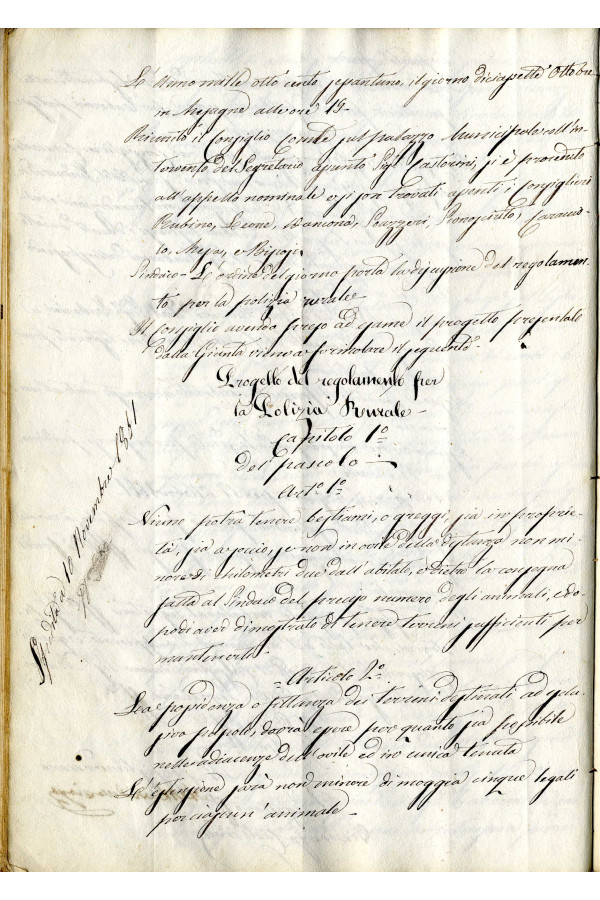 L'Anno mille otto cento settantuno, il giorno diciasette Ottobre
in Mesagne alle ore 19-
Riunito il Consiglio Com.le sul palazzo Municipale coll'in-
tervento del Segretario assunto Sig.r Castorini, si è proceduto
all'appello nominale e si son trovati assenti i Consiglieri
Rubino, Leone, Mancona, Pozzeri, Profilo,
Sindaco - L'ordine del giorno porta la discussione del regolamen-
to per la polizia rurale
Il Consiglio avendo preso ad esame il progetto presentato
dalla Giunta viene a formolare il seguente
Progetto del regolamento per
la Polizia Rurale -
Capitolo 1º
del pascolo -
Art.º 1º
Niuno potrà tenere bestiami, o greggi, sia in proprie-
tà, sia a soccio, se non in ovile della distanza non mi-
nore di chilometri due dall'abitato, e dietro la consegna
fatta al Sindaco del preciso numero degli animali, e do-
po di aver dimostrato di tenere terreni sufficienti per
mantenerli -
Articolo 2º
La possidenza o fittanza dei terreni destinati ad
pascolo, dovrà essere per quanto sia possibile
nelle adiacenze dell'ovile ed in unica tenuta
L'estenzione sarà non minore di moggia cinque legali
per ciascun'animale -
Spedita a 10 Novembre 1871